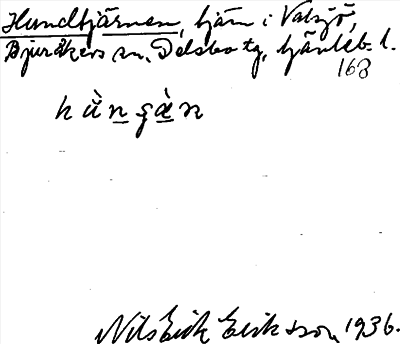 Hundtjärnen, tjärn i Valsjö,
Bjuråkers sn, Delsbo tg, Gävleb. l.
168
hùngæ̀n
Nils Erik Eriksson 1936.